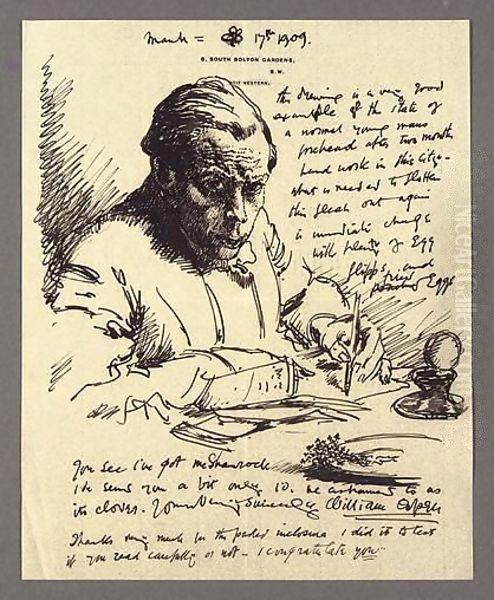 March = 17th 1909.
8, SOUTH BOLTON GARDENS,
S.W.
WESTERN.
This drawing is a very good
example of the state of
a normal young mans
forehead after two months
hard work in this City -
what is needed to flatten
this flesh out again
is immediate change
with plenty of Egg
flipps, and
Eggs
You see I've got my Shamrock
I'd send you a bit only I'd be ashamed to as
its clover. Yours Very Sincerely William Orpen
Thanks very much for the inclosure I did it to test
if you read carefully or not - I congratulate you
NiceArtGallery